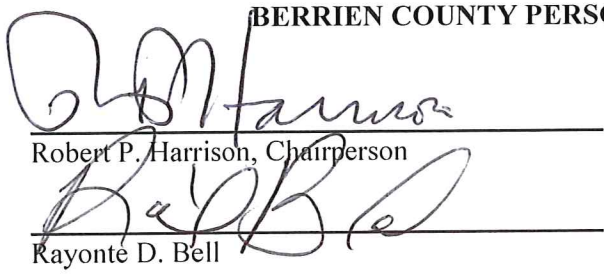 BERRIEN COUNTY PERSO
Robert P. Harrison, Chairperson
Rayonte D. Bell